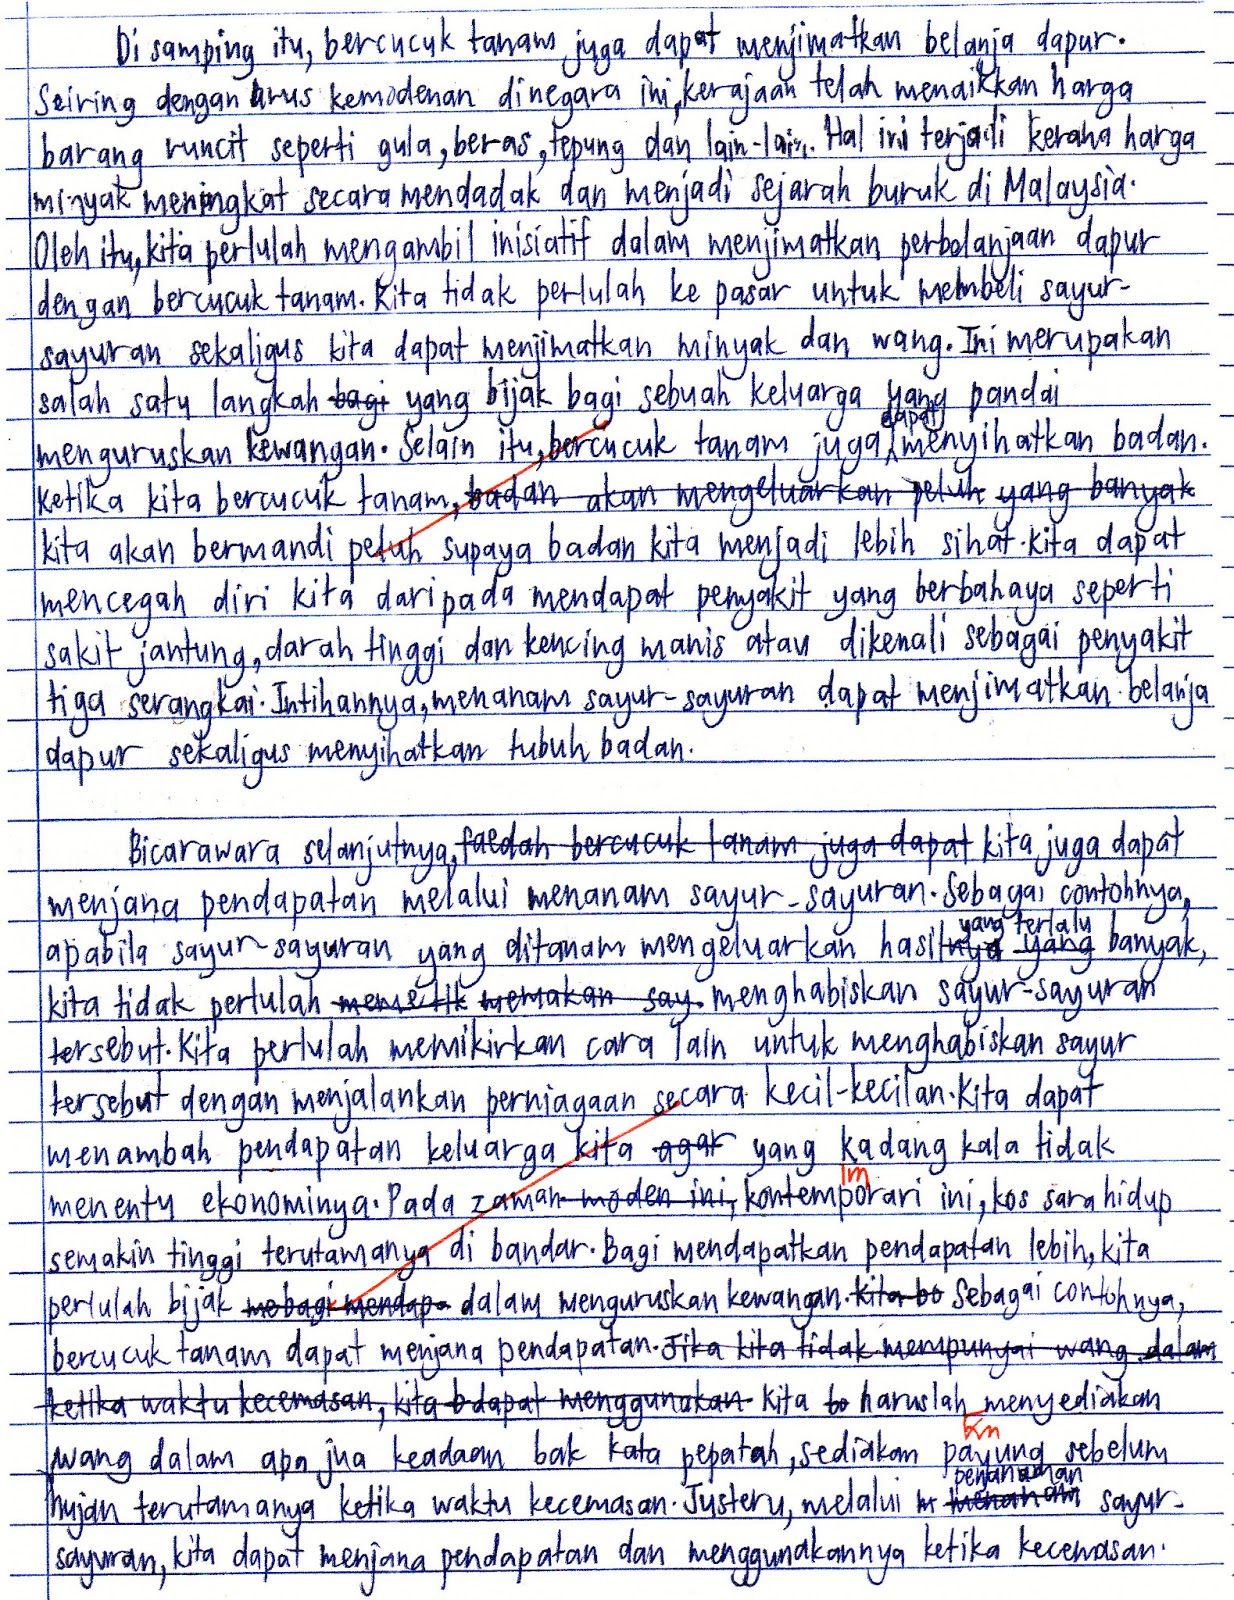 Di samping itu, bercucuk tanam juga dapat menjimatkan belanja dapur.
Seiring dengan arus kemodenan dinegara ini, kerajaan telah menaikkan harga
barang runcit seperti gula, beras, tepung dan lain-lain. Hal ini terjadi kerana harga
minyak meningkat secara mendadak dan menjadi sejarah buruk di Malaysia.
Oleh itu, kita perlulah mengambil inisiatif dalam menjimatkan perbelanjaan dapur
dengan bercucuk tanam. Kita tidak perlulah ke pasar untuk membeli sayur-
sayuran sekaligus kita dapat menjimatkan minyak dan wang. Ini merupakan
salah satu langkah bagi yang bijak bagi sebuah keluarga yang pandai
menguruskan kewangan. Selain itu, bercucuk tanam juga dapat menyihatkan badan.
Ketika kita bercucuk tanam, badan akan mengeluarkan peluh yang banyak
kita akan bermandi peluh supaya badan kita menjadi lebih sihat. Kita dapat
mencegah diri kita daripada mendapat penyakit yang berbahaya seperti
sakit jantung, darah tinggi dan kencing manis atau dikenali sebagai penyakit
tiga serangkai. Intihannya, menanam sayur-sayuran dapat menjimatkan belanja
dapur sekaligus menyihatkan tubuh badan.
Bicarawara selanjutnya, faedah bercucuk tanam juga dapat kita juga dapat
menjana pendapatan melalui menanam sayur-sayuran. Sebagai contohnya,
yang terlalu
apabila sayur-sayuran yang ditanam mengeluarkan hasilnya yang banyak,
kita tidak perlulah memetik memakan say. menghabiskan sayur-sayuran
tersebut. Kita perlulah memikirkan cara lain untuk menghabiskan sayur
tersebut dengan menjalankan perniagaan secara kecil-kecilan. Kita dapat
menambah pendapatan keluarga kita agar yang kadang kala tidak
menentu ekonominya. Pada zaman moden ini, kontemporari ini, kos sara hidup
semakin tinggi terutamanya di bandar. Bagi mendapatkan pendapatan lebih, kita
perlulah bijak mebagi mendapa dalam menguruskan kewangan. Kita bo Sebagai contohnya,
bercucuk tanam dapat menjana pendapatan. Jika kita tidak mempunyai wang dalam
ketika waktu kecemasan, kita b dapat menggunakan. Kita bo haruslah menyediakan
wang dalam apa jua keadaan bak kata pepatah, sediakan payung sebelum
penanaman
hujan terutamanya ketika waktu kecemasan. Justeru, melalui m menanam sayur-
sayuran, kita dapat menjana pendapatan dan menggunakannya ketika kecemasan.